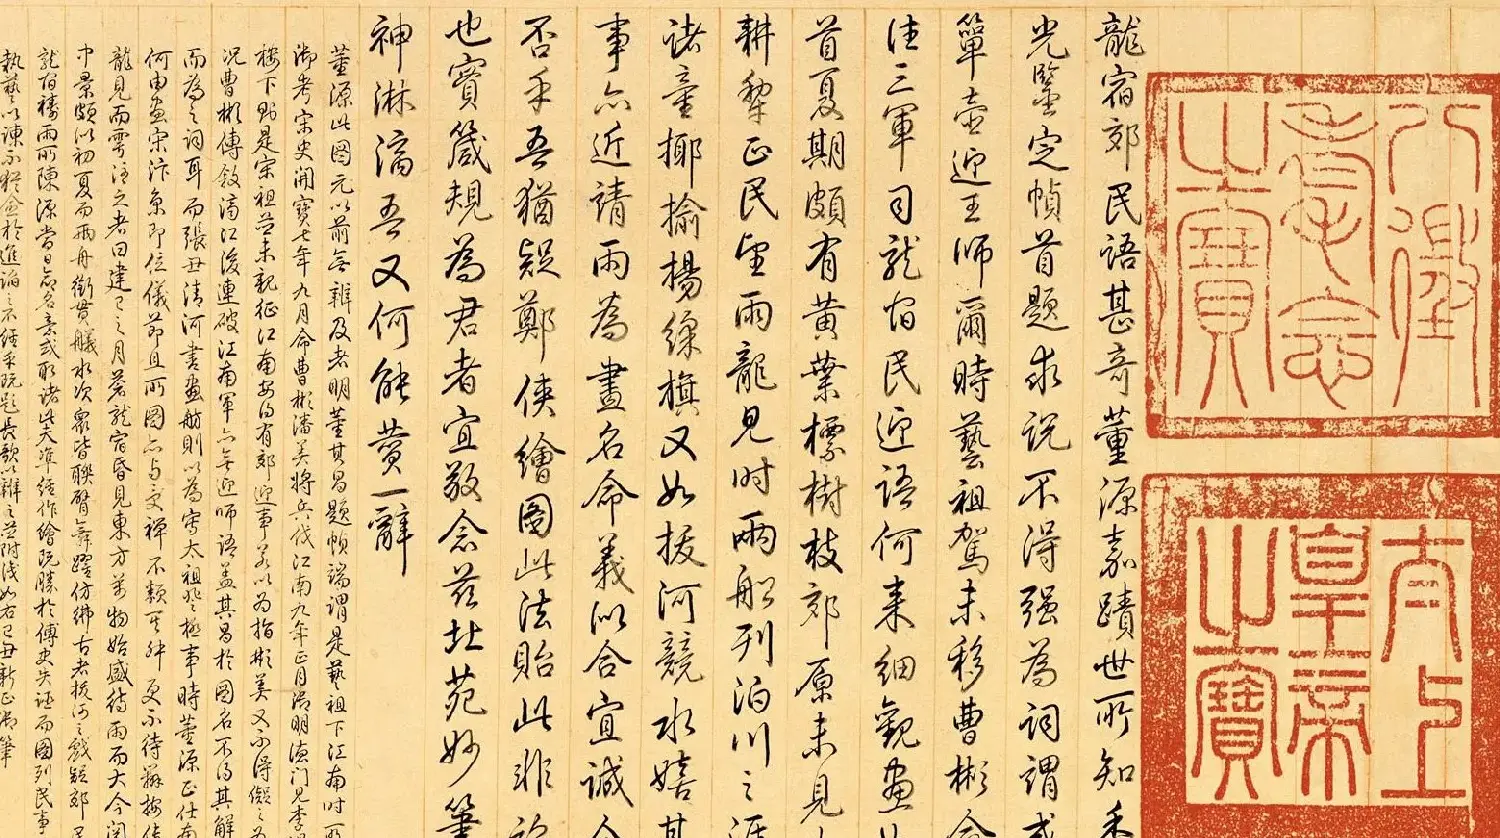 八徵耄念之寶
太上皇帝之寶
龍宿郊民語甚奇董源嘉蹟世所知香
光鑒定幀首題求說不得强為詞謂或
簞壺迎王師爾時藝祖駕未移曹彬命
往三軍司龍宿民迎語何来細觀畫
首夏期頗有黄葉標樹枝郊原未見
耕犂正民望雨龍見时兩船列泊川之涯
诸童揶揄揚綵旗又如拔河競水嬉其
事亦近請雨為畫名命義似合宜誠
否乎吾猶疑鄭俠繪圖此法貽此非
也實箴規為君者宜敬念茲北苑妙筆
神淋漓吾又何能贊一辭
董源此图元以前無辨及者明董其昌題幀端謂是藝祖下江南时所
御考宋史開寶七年九月命曹彬潘美將兵伐江南九年正月御明德門見李
樓下則是宋祖並未親征江南安得有郊迎事若以为指彬美又不得儗之为
况曹彬傳敘濟江後連破江南軍亦無迎師語盖其昌於图名不得其解
而為之词耳而張丑清河書畫舫則以為寫太祖登極事時董源正仕南
何由畫宋汴京即位儀節且所图亦与受禅不類其舛更不待辨按傳
龍見而雩注之者曰建巳之月蒼龍宿昏見東方萬物始盛待雨而大今閱
中景頗似初夏而兩舟銜貫艤水次衆皆聯臂舞蹈仿彿古者拔河之戲疑郊民
龍宿禱雨所陳源當日命名意或取诸此夫準經作繪既勝於傅史失证而图列民事
執藝以諫不猶愈於進諂之不經乎既題長歌以辨之並附識如右己丑新正御筆